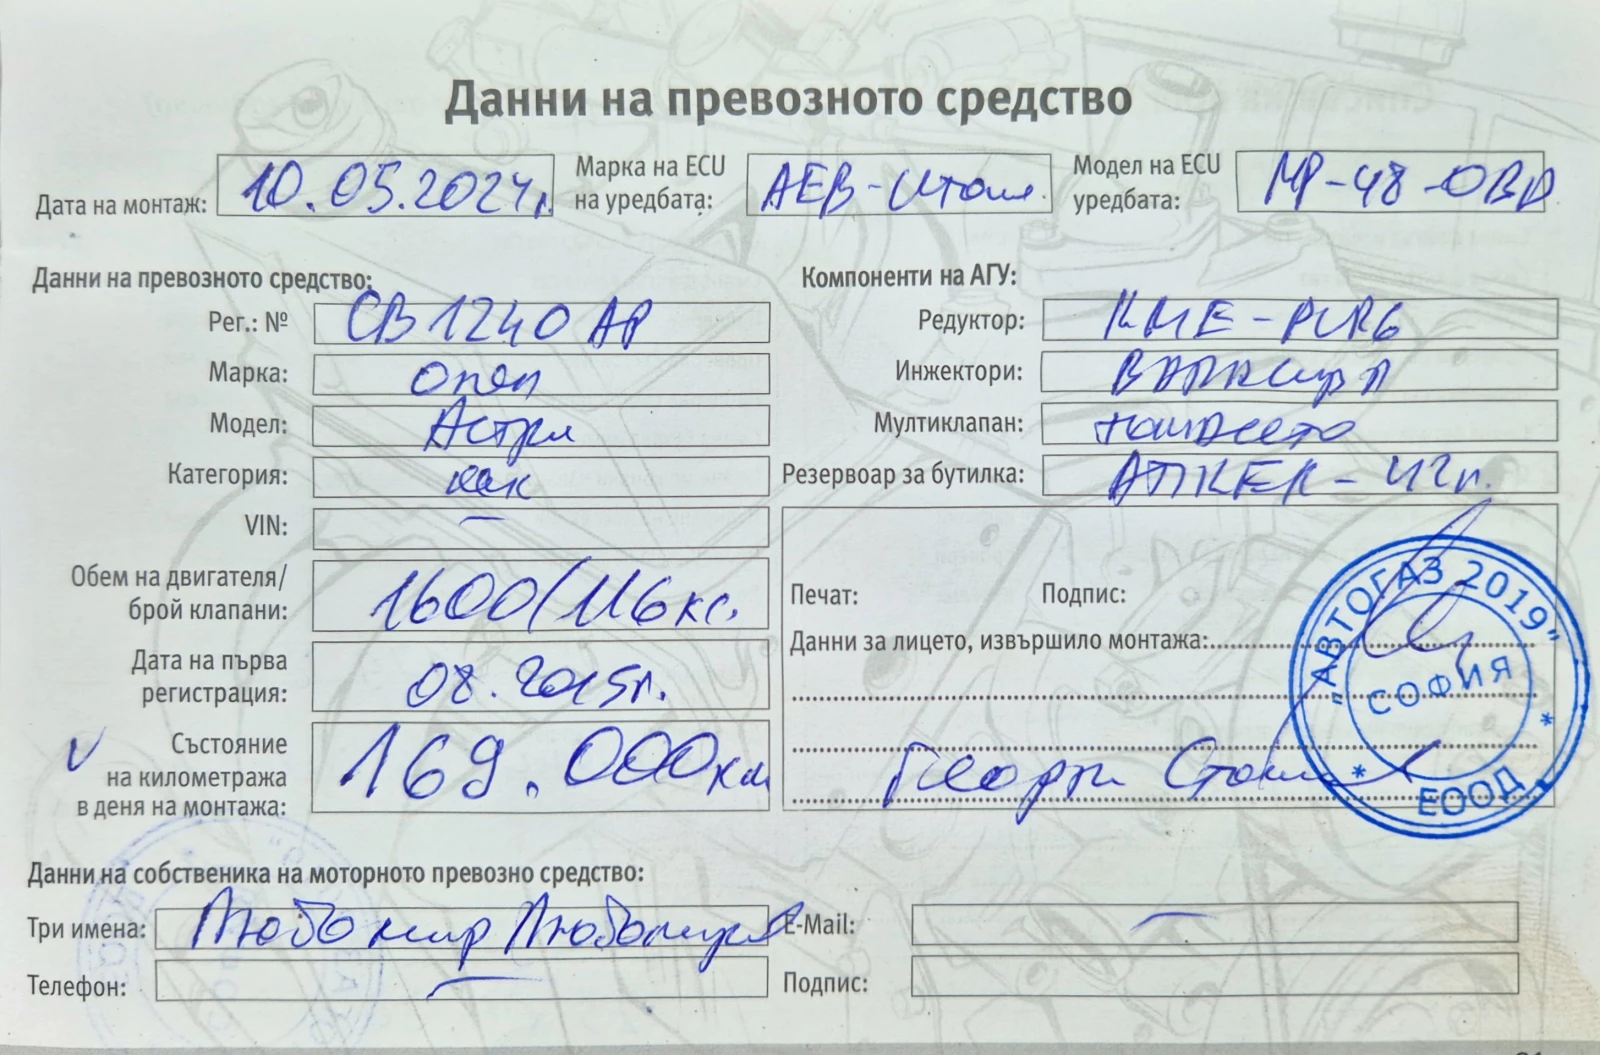 Данни на превозното средство
Дата на монтаж: 10.05.2024г.
Марка на ECU на уредбата: АЕВ-Итали
Модел на ECU уредбата: МР-48-OBD
Данни на превозното средство:
Рег.: № СВ1240АР
Марка: Опел
Модел: Астра
Категория: лек
VIN: —
Обем на двигателя/ брой клапани: 1600/116кс.
Дата на първа регистрация: 08.2015г.
V Състояние на километража в деня на монтажа: 169.000км
Компоненти на АГУ:
Редуктор: КМЕ-
Инжектори:
Мултиклапан: Томасето
Резервоар за бутилка: - 42л.
Печат:
Подпис:
Данни за лицето, извършило монтажа:
Георги
"АВТОГАЗ 2019"
СОФИЯ
ЕООД
Данни на собственика на моторното превозно средство:
Три имена: Любомир Любомиров
E-Mail: —
Телефон: —
Подпис: